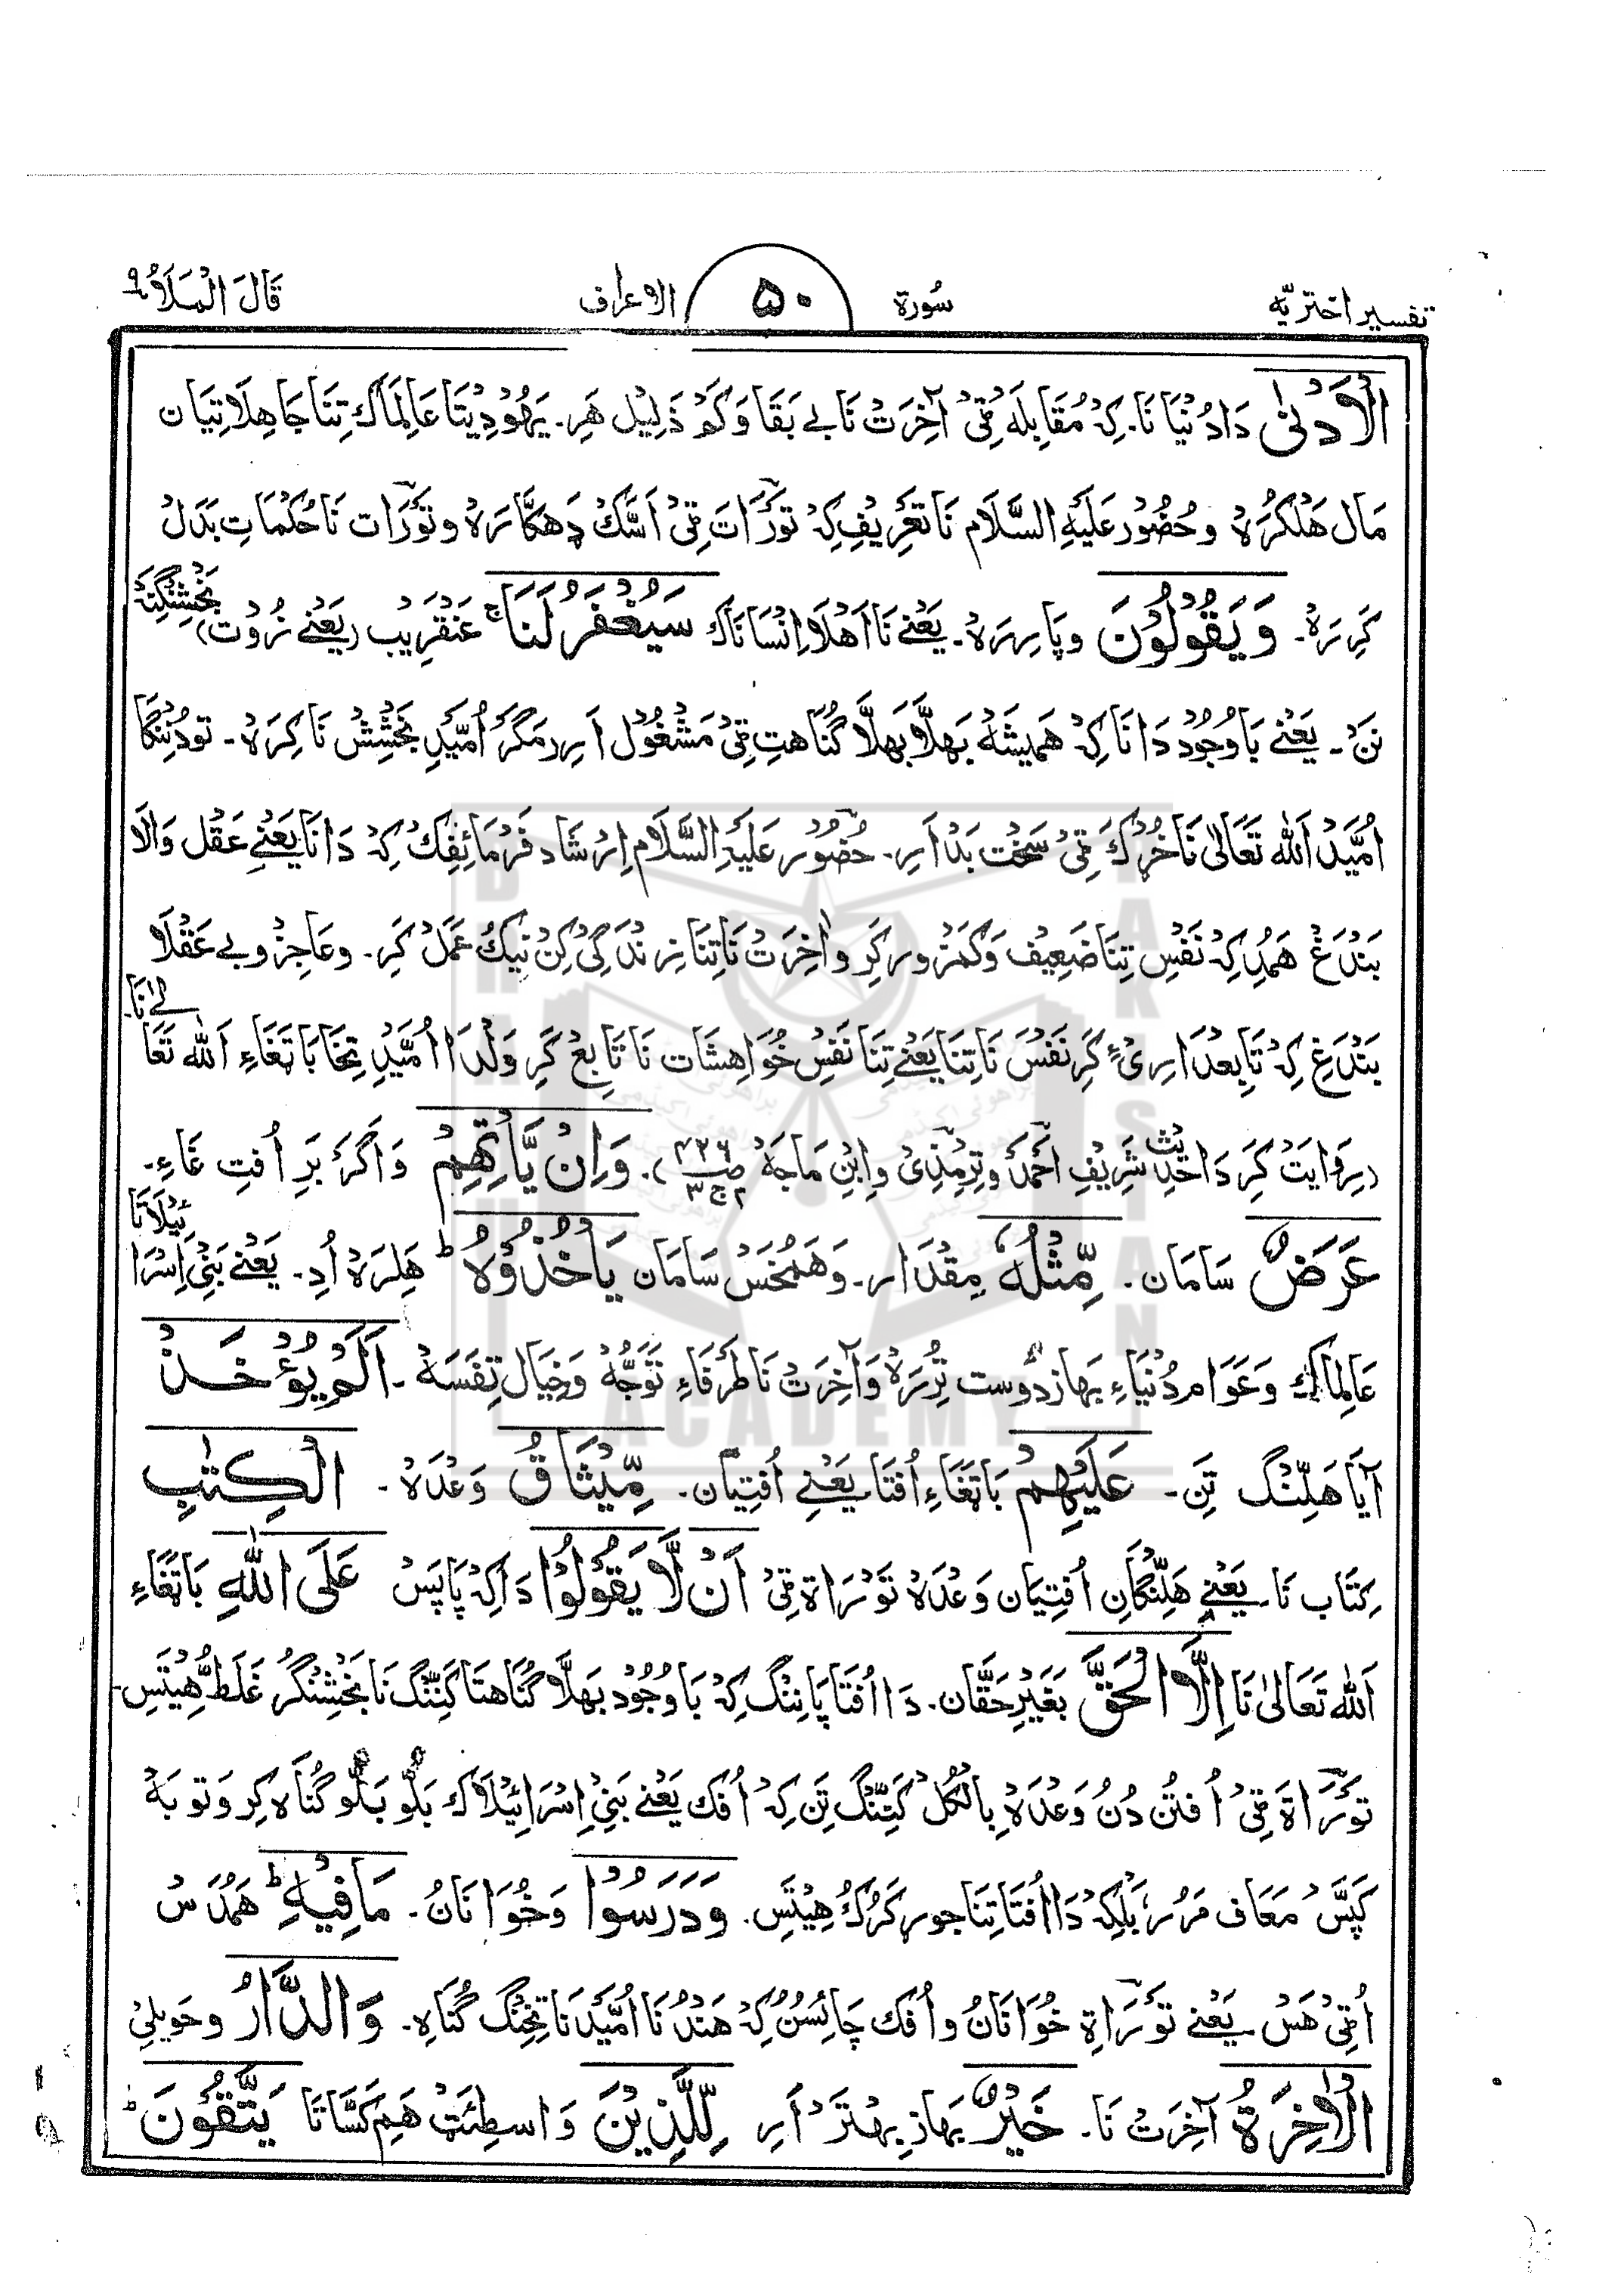 تفسیر اختریّه سُورة ۵۰ الاعراف قَالَ الْمَلَاُ ۹
الْاَدْنٰی دَا دُنْیَا نَا۔ کِہْ مُقَابِلَہ ٹِیْ آخِرَتْ نَا بے بَقَا وَ کَمْ ذَلِیْل ھَرِ۔ یَھُوْدِیْتَا عَالِمَاکْ تِنَا جَاھِلَا تِیَان
مَال ھَلْکُرَہْ وحُضُوْر عَلَیْہِ السَّلَام نَا تَعْرِیْف کِہْ تَوْرَاتْ ٹِیْ اَسَّکْ ڍَھکَّا رَہْ و تَوْرَات نَا حُکْمَاتِ بَدَلْ
کَرِرَہْ۔ وَیَقُوْلُوْنَ وپَارِرَہْ۔ یَعْنے نَا اَھْلَا اِنْسَانَاکْ سَیُغْفَرُ لَنَا ج عَنْقَرِیْب (یَعْنے زُوْت) بَخْشِنْگِنَہْ
نَنْ۔ یَعْنے بَاوُجُوْد دَانَا کِہْ ھَمِیْشَہْ بَھلَّا بَھلَّا گُنَاھتِ ٹِیْ مَشْغُوْل اَرِرْ مَگَرْ اُمِّیْدِ بَخْشِشْ نَا کِرَہْ۔ تَوْ دُنِنْگَا
اُمِّیْدْ اَللہ تَعَالیٰ نَا خُرْکَ ٹِیْ سَخْت بَدْ اَرِ۔ حُضُوْر عَلَیْہِ السَّلَام اِرْشَاد فَرْمَائِفِکْ کِہْ دَانَا یَعْنے عَقْل وَالَا
بَنْدَغْ ھَمْدِ کِہْ نَفْسِ تِنَا ضَعِیْف وَ کَمْزور کَرِ و اٰخِرَتْ نَا تِنَا زِنْدَگِیْ کِنْ نیکْ عَمَلْ کَرِ۔ و عَاجِزْ و بے عَقْلَا
بَنْدَغ کِہْ تَابِعْدَارِیْ ءِ کَرِ نَفْسَ نَا تِنَا یَعْنے تِنَا نَفْسِ خُوَاھِشَات نَا تَابِعْ کَرِ وَلْدَا اُمِّیْدِ تِخَا بَاتغَاءِ اَللہ تَعَالےٰ نَا۔
(رِوَایَتْ کَرِ دَا حَدِیْث شَرِیْفِ اَحْمَدْ وَ تِرْمِذِیْ وِ ابْنِ مَاجَہْ). وَاِنْ یَّاْتِھِمْ وَ اَگَرْ بَرِ اُفتِ غَاءِ۔
عَرَضٌ سَامَان۔ مِّثْلُہٗ مِقْدَار۔ وَ ھَمُخَسْ سَامَان یَاْخُذُوْہُ ط ھَلِرَہْ اُدِ۔ یَعْنے بَنِیْ اِسْرَائِیْلَا تَا
عَالِمَاکْ وَ عَوَام دُنْیَاءِ بھاز دُوست تُرِرَہْ وَ آخِرَتْ نَا طَرَفَاءِ تَوَجُّہْ وَ خِیَال تِفَسَہْ۔ اَلَمْ یُؤْخَذْ
آیَا ھَلِّنْگ تَنْ۔ عَلَیْھِمْ بَاتغَاءِ اُفتَا یَعْنے اُفتِیَان۔ مِّیْثَاقُ وَعْدَہْ۔ الْکِتٰبِ
کِتَاب نَا۔ یَعْنے ھَلِنْگَانِ اُفتِیَان وَعْدَہْ تَوْرَاۃ ٹِیْ اَنْ لَّا یَقُوْلُوْا دَاکِہْ پَاپَسْ عَلَی اللہِ بَاتغَاءِ
اَللہ تَعَالیٰ نَا اِلَّا الْحَقَّ بَغَیْرِ حَقَّان۔ دَا اُفتَا پَانِنْگ کِہْ بَاوُجُوْد بَھلَّا گُنَاھتَا کَنِنْگ نَا بَخْشِنْگُرْ غَلَطُّ ھِیْتَسِ۔
تَوْرَاۃ ٹِیْ اُفتُن دُنْ وَعْدَہْ بِالْکُلْ کَتِنْگ تَنْ کِہْ اُفک یَعْنے بَنِیْ اِسْرَائِیْلَاکْ بَلُّو بَلُّو گُنَاہ کِر وَ تَوبَہْ
کَپَسْ مَعَاف مَرُر بَلْکِہْ دَا اُفتَا تِنَا جور کَرُکْ ھِیْتَسِ۔ وَدَرَسُوْا وَخُوَانَانُ۔ مَا فِیْہِ ط ھَمْدَسْ
اُٹِیْ ھَسْ۔ یَعْنے تَوْرَاۃِ خُوَانَانُ و اُفک چَائِسُنْ کِہْ ھَنْدُنْ نَا اُمِّیْد نَا تِخِنْگ گُنَاہِ۔ وَالدَّارُ وحَوِیلِیْ
الْاٰخِرَۃُ آخِرَتْ نَا۔ خَیْرٌ بھازِ بِھْتَرْ اَرِ لِّلَّذِیْنَ وَاسِطِئَتْ ھَمِ کَسَّاتَا یَتَّقُوْنَ ط
BRAHUI ACADEMY PAKISTAN